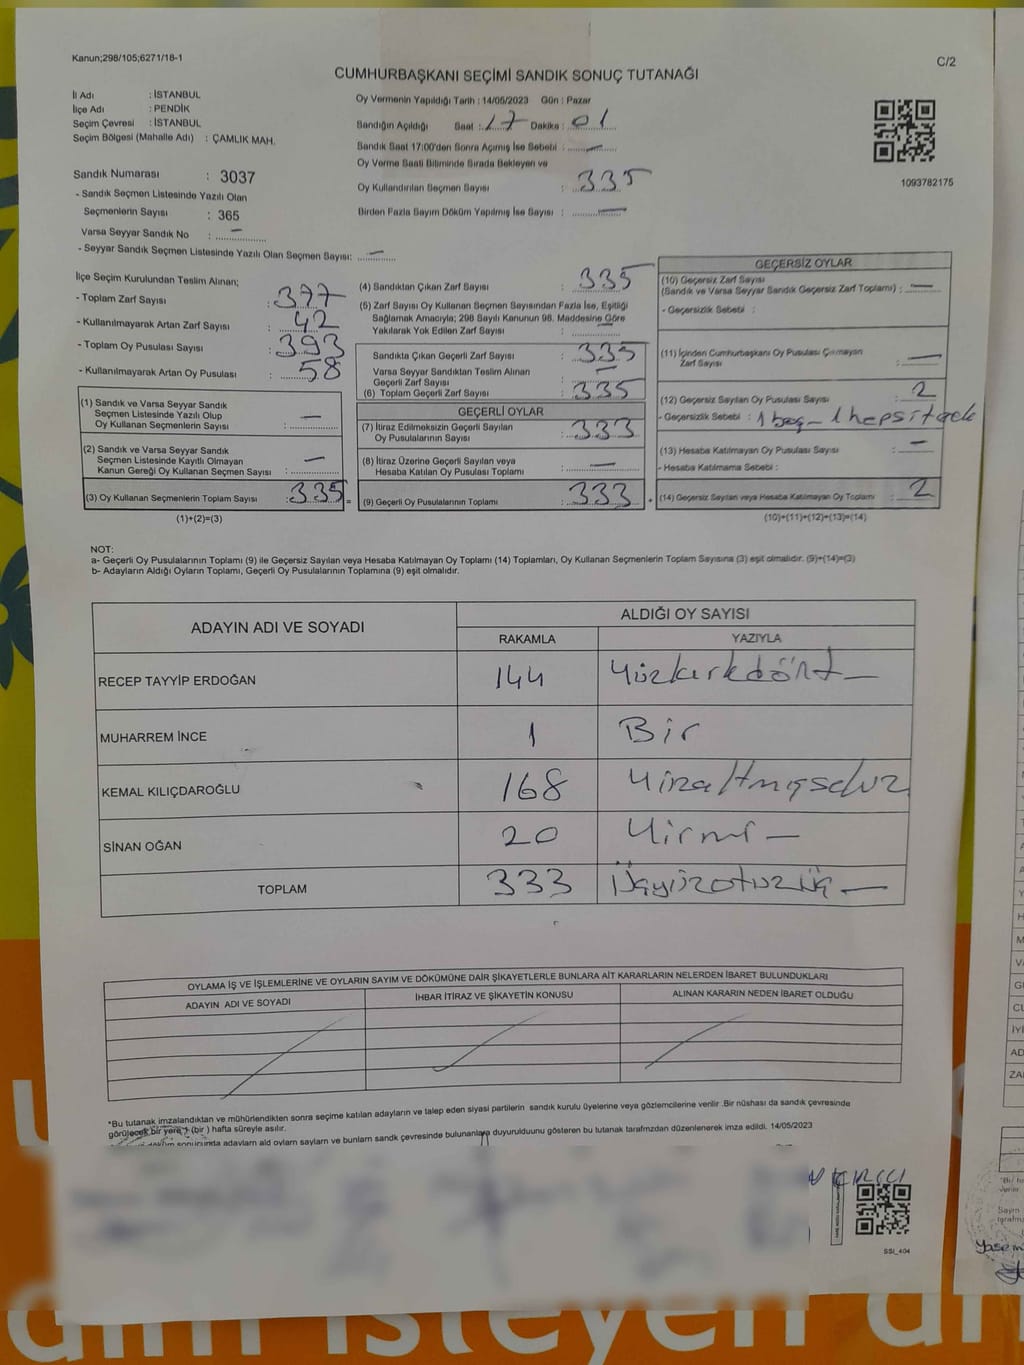 Kanun;298/105;6271/18-1
C/2
CUMHURBAŞKANI SEÇİMİ SANDIK SONUÇ TUTANAĞI
İl Adı : İSTANBUL
İlçe Adı : PENDİK
Seçim Çevresi : İSTANBUL
Seçim Bölgesi (Mahalle Adı) : ÇAMLIK MAH.
Sandık Numarası : 3037
- Sandık Seçmen Listesinde Yazılı Olan
Seçmenlerin Sayısı : 365
Varsa Seyyar Sandık No : —
- Seyyar Sandık Seçmen Listesinde Yazılı Olan Seçmen Sayısı: —
Oy Vermenin Yapıldığı Tarih : 14/05/2023 Gün : Pazar
Sandığın Açıldığı Saat : 17 Dakika : 01
Sandık Saat 17:00'den Sonra Açımış İse Sebebi : —
Oy Verme Saati Bitiminde Sırada Bekleyen ve
Oy Kullandırılan Seçmen Sayısı : 335
Birden Fazla Sayım Döküm Yapılmış İse Sayısı : —
1093782175
İlçe Seçim Kurulundan Teslim Alınan;
- Toplam Zarf Sayısı : 377
- Kullanılmayarak Artan Zarf Sayısı : 42
- Toplam Oy Pusulası Sayısı : 393
- Kullanılmayarak Artan Oy Pusulası : 58
(1) Sandık ve Varsa Seyyar Sandık
Seçmen Listesinde Yazılı Olup
Oy Kullanan Seçmenlerin Sayısı : —
(2) Sandık ve Varsa Seyyar Sandık
Seçmen Listesinde Kayıtlı Olmayan
Kanun Gereği Oy Kullanan Seçmen Sayısı : —
(3) Oy Kullanan Seçmenlerin Toplam Sayısı : 335 =
(1)+(2)=(3)
(4) Sandıktan Çıkan Zarf Sayısı : 335
(5) Zarf Sayısı Oy Kullanan Seçmen Sayısından Fazla İse, Eşitliği
Sağlamak Amacıyla; 298 Sayılı Kanunun 98. Maddesine Göre
Yakılarak Yok Edilen Zarf Sayısı : —
Sandıkta Çıkan Geçerli Zarf Sayısı : 335
Varsa Seyyar Sandıktan Teslim Alınan
Geçerli Zarf Sayısı : —
(6) Toplam Geçerli Zarf Sayısı : 335
GEÇERLİ OYLAR
(7) İtiraz Edilmeksizin Geçerli Sayılan
Oy Pusulalarının Sayısı : 333
(8) İtiraz Üzerine Geçerli Sayılan veya
Hesaba Katılan Oy Pusulası Toplamı : —
(9) Geçerli Oy Pusulalarının Toplamı : 333 +
GEÇERSİZ OYLAR
(10) Geçersiz Zarf Sayısı
(Sandık ve Varsa Seyyar Sandık Geçersiz Zarf Toplamı) : —
- Geçersizlik Sebebi :
(11) İçinden Cumhurbaşkanı Oy Pusulası Çıkmayan
Zarf Sayısı : —
(12) Geçersiz Sayılan Oy Pusulası Sayısı : 2
- Geçersizlik Sebebi : 1 boş - 1 hepsi
(13) Hesaba Katılmayan Oy Pusulası Sayısı : —
- Hesaba Katılmama Sebebi :
(14) Geçersiz Sayılan veya Hesaba Katılmayan Oy Toplamı : 2
(10)+(11)+(12)+(13)=(14)
NOT:
a- Geçerli Oy Pusulalarının Toplamı (9) ile Geçersiz Sayılan veya Hesaba Katılmayan Oy Toplamı (14) Toplamları, Oy Kullanan Seçmenlerin Toplam Sayısına (3) eşit olmalıdır. (9)+(14)=(3)
b- Adayların Aldığı Oyların Toplamı, Geçerli Oy Pusulalarının Toplamına (9) eşit olmalıdır.
ADAYIN ADI VE SOYADI
ALDIĞI OY SAYISI
RAKAMLA YAZIYLA
RECEP TAYYİP ERDOĞAN 144 Yüzkırkdört —
MUHARREM İNCE 1 Bir
KEMAL KILIÇDAROĞLU 168 Yüzaltmışsekiz
SİNAN OĞAN 20 Yirmi —
TOPLAM 333 Üçyüzotuzüç —
OYLAMA İŞ VE İŞLEMLERİNE VE OYLARIN SAYIM VE DÖKÜMÜNE DAİR ŞİKAYETLERLE BUNLARA AİT KARARLARIN NELERDEN İBARET BULUNDUKLARI
ADAYIN ADI VE SOYADI İHBAR İTİRAZ VE ŞİKAYETİN KONUSU ALINAN KARARIN NEDEN İBARET OLDUĞU
*Bu tutanak imzalandıktan ve mühürlendikten sonra seçime katılan adayların ve talep eden siyasi partilerin sandık kurulu üyelerine veya gözlemcilerine verilir .Bir nüshası da sandık çevresinde
görülecek bir yere 1 (bir ) hafta süreyle asılır.
sonucunda adayların ald oyların sayların ve bunların sandık çevresinde bulunanlara duyurulduunu gösteren bu tutanak tarafmzdan düzenlenerek imza edildi. 14/05/2023
SSI_404